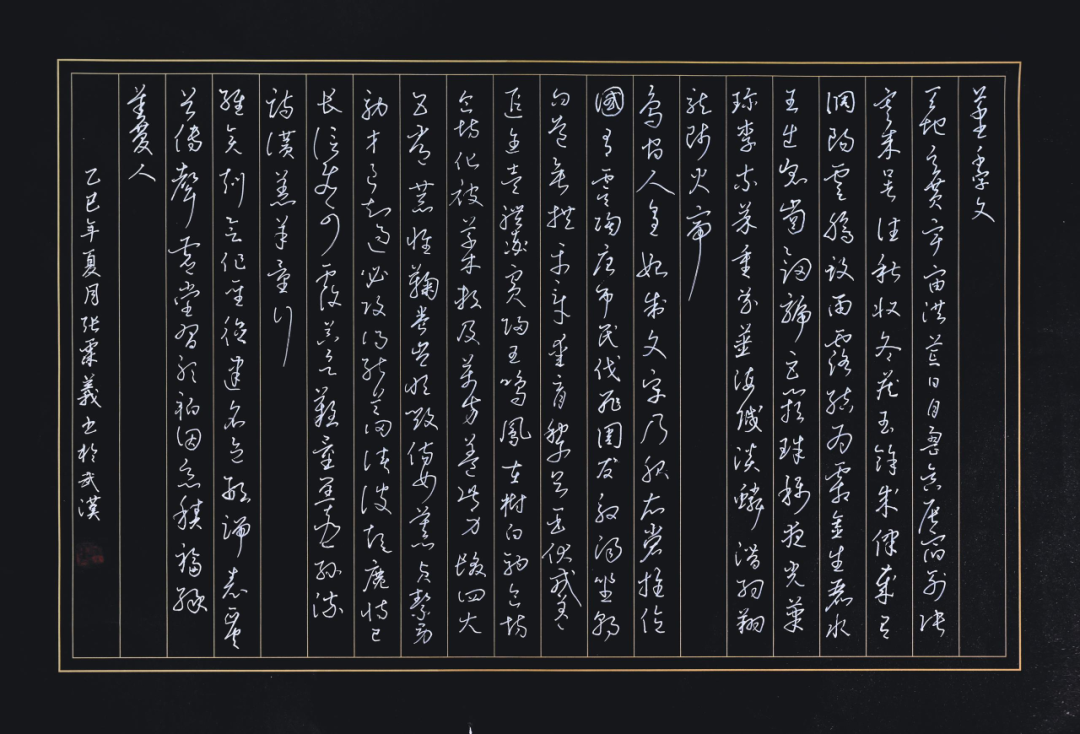 草书千字文
天地玄黄宇宙洪荒日月盈昃辰宿列张
寒来暑往秋收冬藏闰馀成律歲吕
调阳云腾致雨露结为霜金生丽水
玉出崑岗剑号巨阙珠称夜光菓
珍李柰菜重芥薑海咸淡鳞潜羽翔
龙师火帝
鸟官人皇始制文字乃服衣裳推位
國有虞陶唐吊民伐罪周发殷汤坐朝
问道垂拱平章爱育黎首臣伏戎羌
遐迩壹體率宾归王鸣鳳在树白驹食场
食场化被草木赖及万方盖此身发四大
五常恭惟鞠养岂敢毁伤女慕贞絜男
效才良知过必改得能莫忘谈彼短靡恃己
长信使可覆器欲难量墨悲丝染
诗讚羔羊景行
维贤克念作圣德建名立形端表正空
谷传聲虚堂習听禍因恶积福缘
善慶人
乙巳年夏月张栗義书於武漢